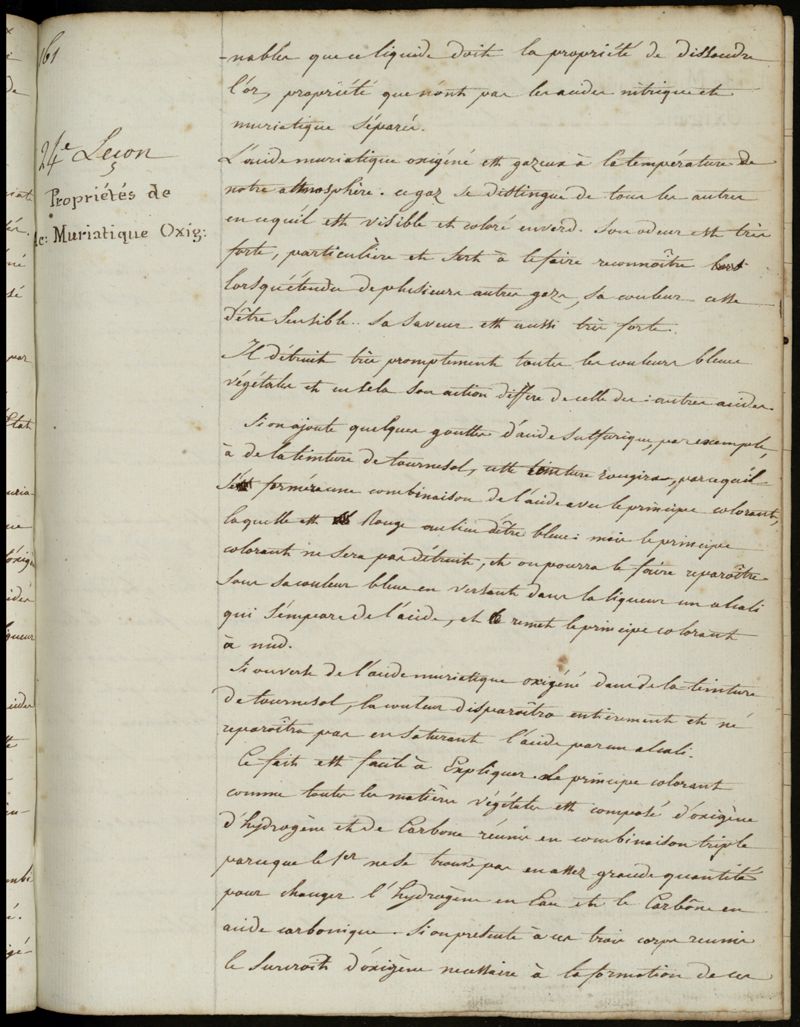 161
-nables que ce liquide doit la propriété de dissoudre
l'or, propriété que n'ont pas les acides nitrique et
muriatique séparés.
24e Leçon
Propriétés de
ac: Muriatique Oxig:
L'acide muriatique oxigéné est gazeux à la température de
notre atmosphère. ce gaz se distingue de tous les autres
en ce qu'il est visible et coloré en verd. Son odeur est très
forte, particulière et sert à le faire reconnoître
lorsqu'étendu de plusieurs autres gazs, sa couleur cesse
d'être sensible. Sa saveur est aussi très forte.
Il détruit très promptement toutes les couleurs bleues
végétales et en cela son action differe de celle des autres acides.
Si on ajoute quelques gouttes d'acide sulfurique, par exemple,
à de la teinture de tournesol, cette teinture rougira, parcequ'il
se formera une combinaison de l'acide avec le principe colorant,
laquelle est Rouge au lieu d'être bleue: mais le principe
colorant ne sera pas détruit, et on pourra le faire reparoître
sous sa couleur bleue en versant dans la liqueur un alcali
qui s'empare de l'acide, et remet le principe colorant
à nud.
Si on verse de l'acide muriatique oxigéné dans de la teinture
de tournesol, la couleur disparoîtra entièrement et ne
reparoîtra pas en saturant l'acide par un alcali.
Ce fait est facile à Expliquer. Le principe colorant
comme toutes les matières végétales est composé d'oxigène
d'hydrogène et de Carbone réunis en combinaison triple
parceque le 1er ne se trouve pas en assez grande quantité
pour changer l'hydrogène en Eau et le Carbône en
acide carbonique. Si on présente à ces trois corps reunis
le surcroît d'oxigène necessaire à la formation de ces